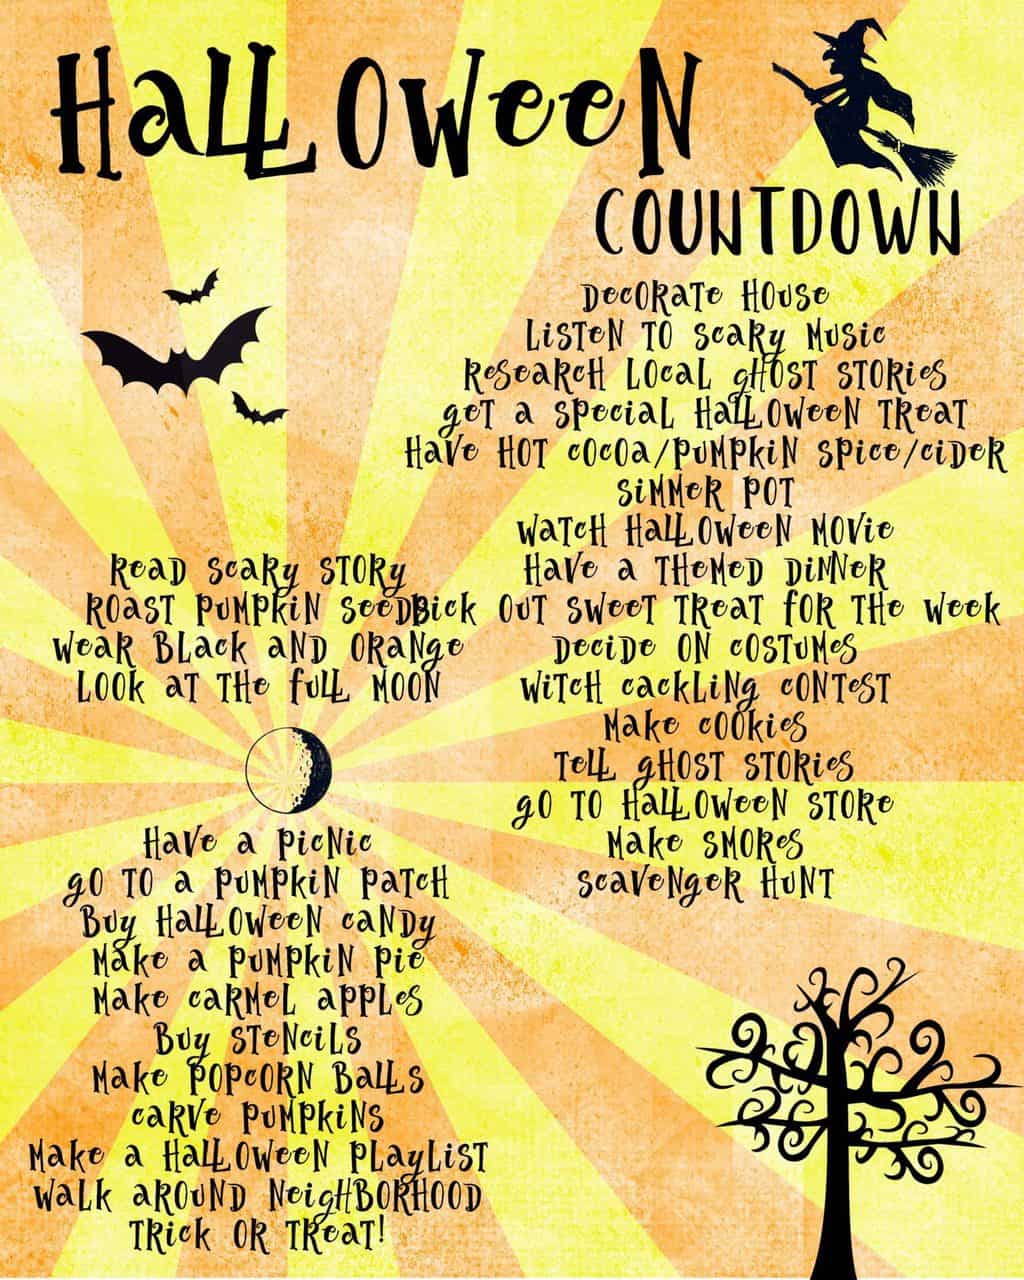 Halloween
COUNTDOWN
Decorate House
Listen to Scary Music
Research Local Ghost Stories
Get a Special Halloween Treat
Have Hot Cocoa/Pumpkin Spice/Cider
Simmer Pot
Watch Halloween Movie
Have a Themed Dinner
Pick Out Sweet Treat for the Week
Decide on Costumes
Witch Cackling Contest
Make Cookies
Tell Ghost Stories
Go to Halloween Store
Make Smores
Scavenger Hunt
Read Scary Story
Roast Pumpkin Seeds
Wear Black and Orange
Look at the Full Moon
Have a Picnic
Go to a Pumpkin Patch
Buy Halloween Candy
Make a Pumpkin Pie
Make Carmel Apples
Buy Stencils
Make Popcorn Balls
Carve Pumpkins
Make a Halloween Playlist
Walk Around Neighborhood
Trick or Treat!